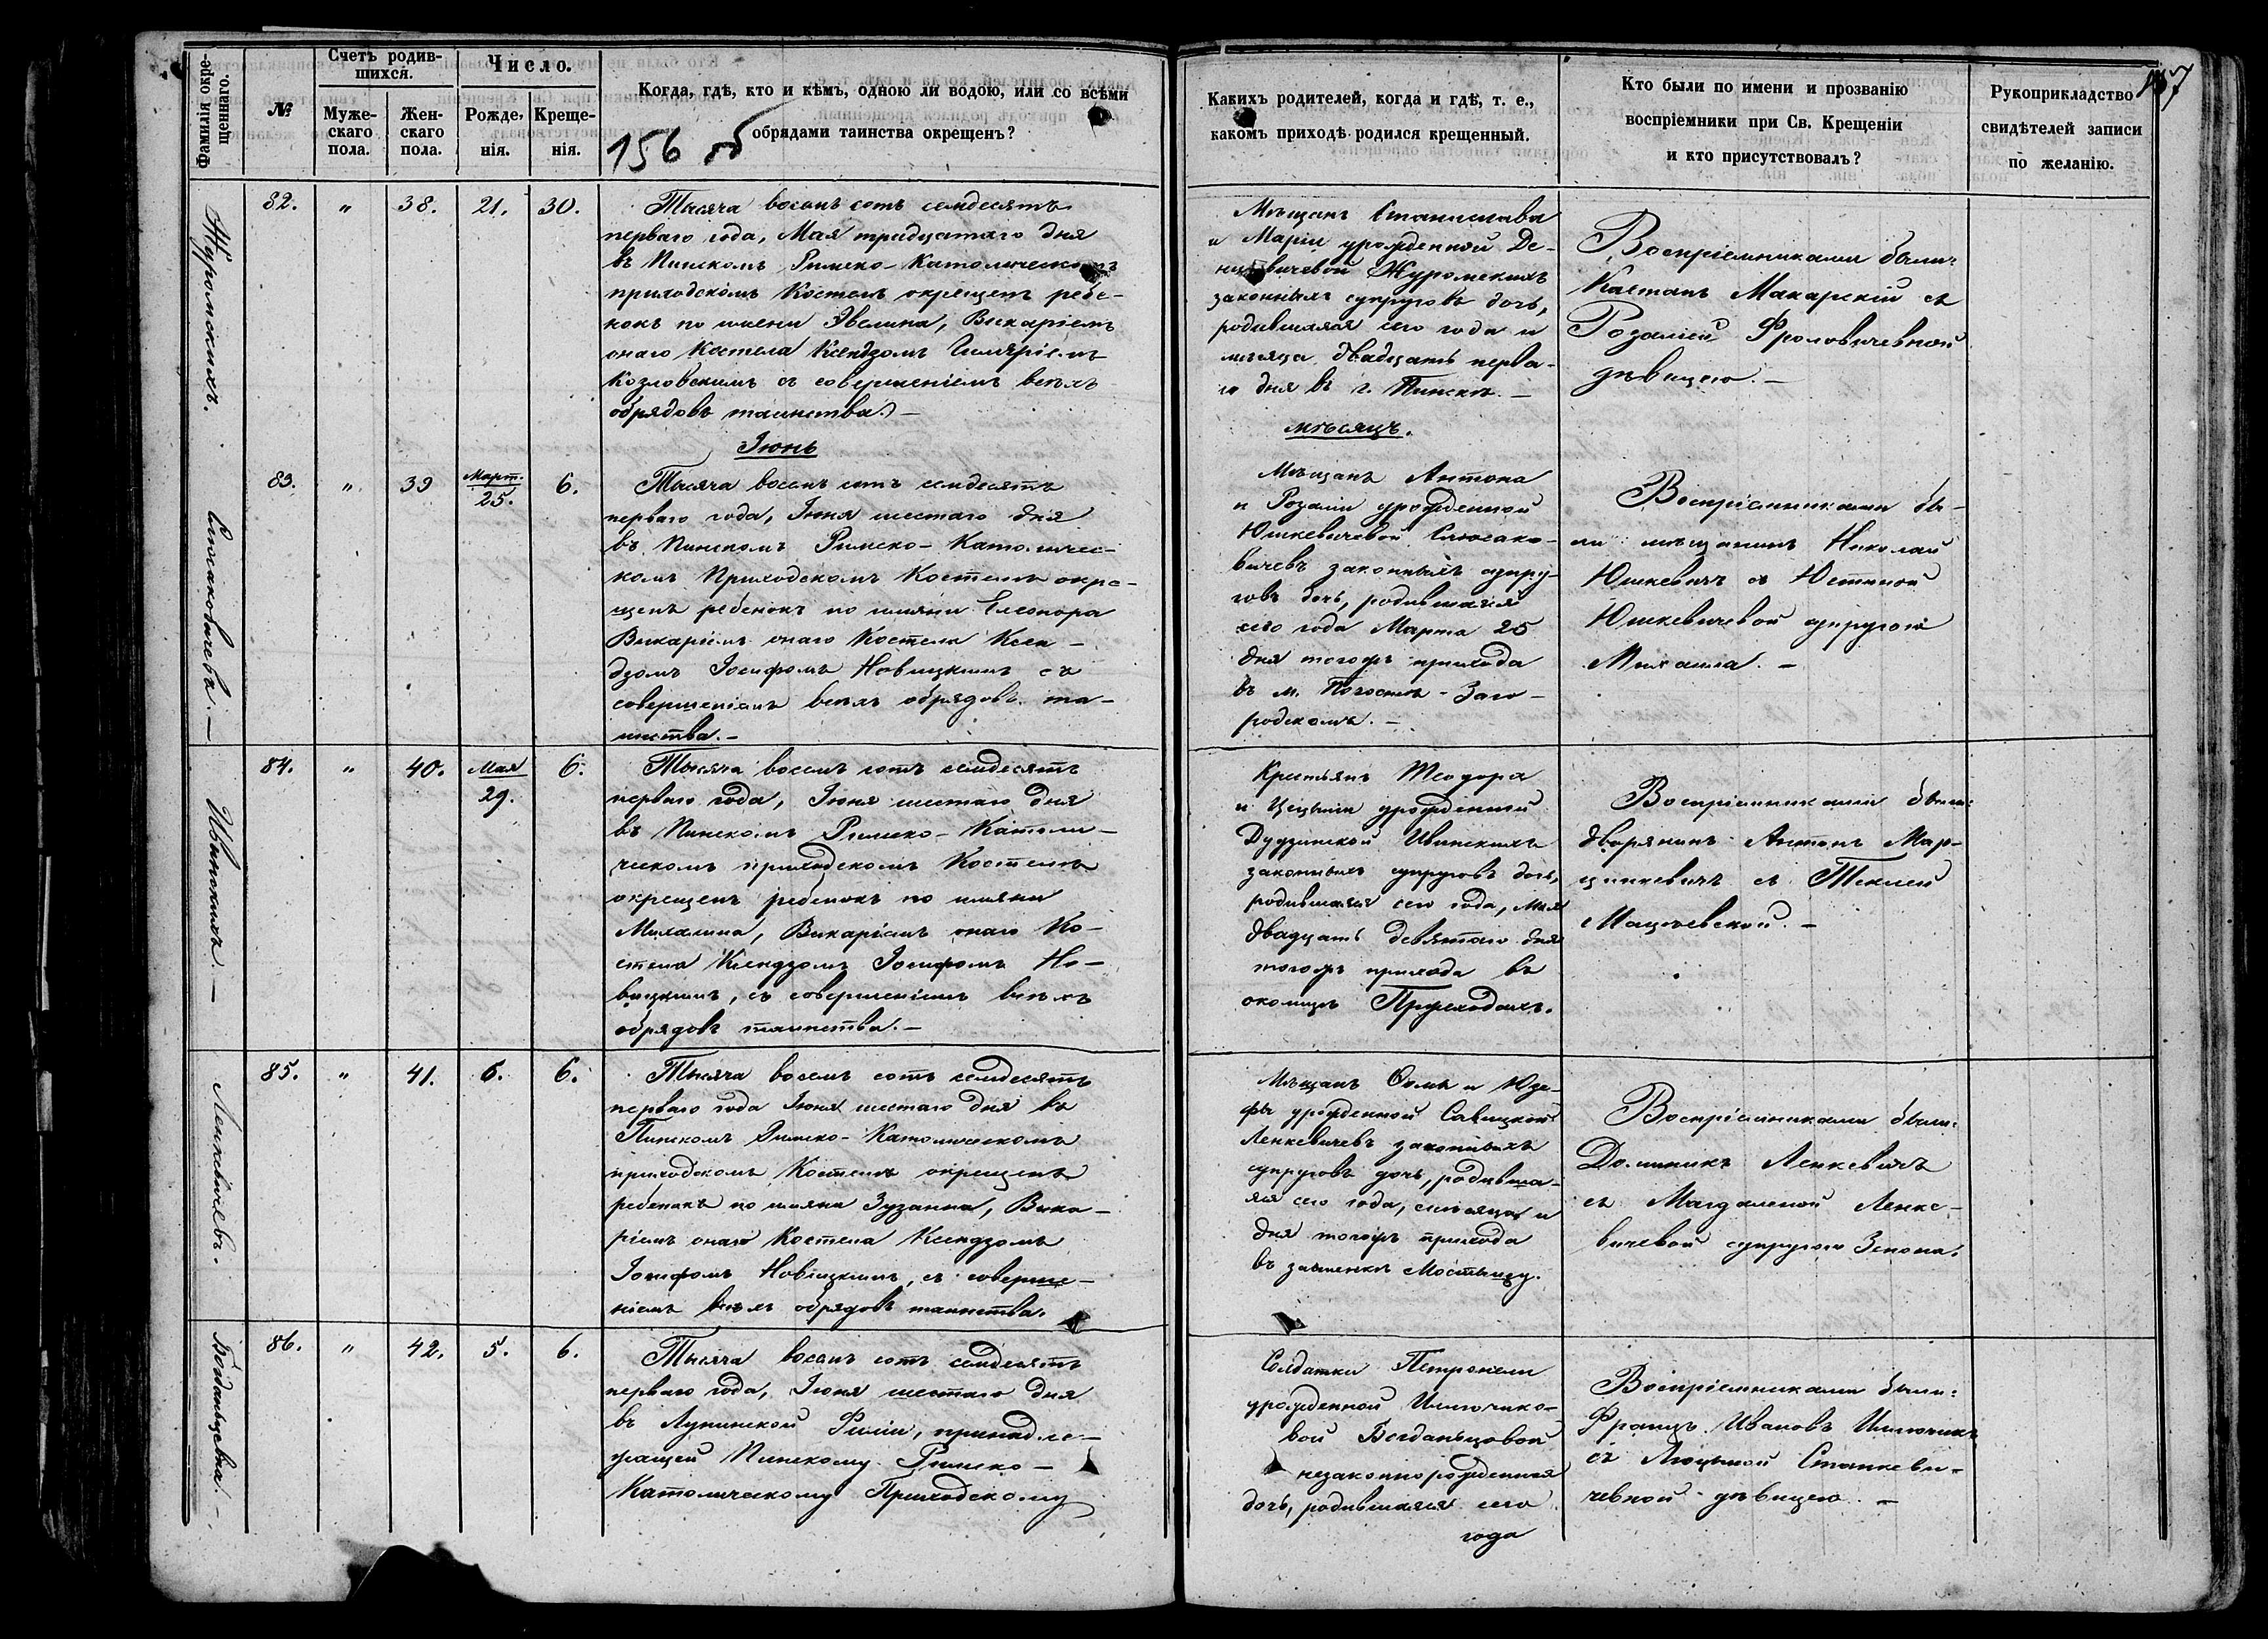 Фамилія окре-
щеннаго.
№
Счетъ родив-
шихся.
Муже-
скаго
пола.
Жен-
скаго
пола.
Число.
Рожде-
нія.
Креще-
нія.
Когда, гдѣ, кто и кѣмъ, одною ли водою, или со всѣми
обрядами таинства окрещенъ?
156 об
Какихъ родителей, когда и гдѣ, т. е.,
какомъ приходѣ родился крещенный.
Кто были по имени и прозванію
воспріемники при Св. Крещеніи
и кто присутствовалъ?
Рукоприкладство
свидѣтелей записи
по желанію.
157
Журомскихъ.
82. " 38. 21. 30.
Тысяча восемь сотъ семдесятъ
перваго года, Мая тридцатаго дня
въ Пинскомъ Римско-Католическомъ
приходскомъ Костелѣ окрещенъ ребе-
нокъ по имени Эвелина, Викаріемъ
онаго Костела Ксендзомъ Гиляріемъ
Козловскимъ съ совершеніемъ всѣхъ
обрядовъ таинства.—
Мѣщанъ Станислава
и Маріи урожденной Де-
Журомскихъ
законныхъ супруговъ дочь,
родившаяся сего года и
мѣсяца двадцать перва-
го дня въ г. Пинскѣ.—
Воспріемниками были:
Каетанъ Макарскій съ
Розаліей Фроловичевной
дѣвицею.—
Іюнь
мѣсяцъ.
Слюсаковичевъ.—
83. " 39 Март. 25. 6.
Тысяча восемь сотъ семдесятъ
перваго года, Іюня шестаго дня
въ Пинскомъ Римско-Католичес-
комъ Приходскомъ Костелѣ окре-
щенъ ребенокъ по имяни Елеонора
Викаріемъ онаго Костела Ксен-
дзомъ Іосифомъ Новицкимъ съ
совершеніемъ всѣхъ обрядовъ та-
инства.—
Мѣщанъ Антона
и Розаліи урожденной
Юшкевичевой Слюсако-
вичевъ законныхъ супру-
говъ дочь, родившаяся
сего года Марта 25
дня тогожъ прихода
въ м. Погостѣ-Заго-
родскомъ.—
Воспріемниками бы-
ли мѣщанинъ Николай
Юшкевичъ съ Юстиной
Юшкевичевой супругою
Михаила.—
Ивинскихъ.—
84. " 40. Мая 29. 6.
Тысяча восемь сотъ семдесятъ
перваго года, Іюня шестаго дня
въ Пинскомъ Римско-Католи-
ческомъ приходскомъ Костелѣ
окрещенъ ребенокъ по имяни
Михалина, Викаріемъ онаго Ко-
стела Ксендзомъ Іосифомъ Но-
вицкимъ, съ совершеніемъ всѣхъ
обрядовъ таинства.—
Крестьянъ Теодора
и Цециліи урожденной
Дудзинской Ивинскихъ
законныхъ супруговъ дочь,
родившаяся сего года, Мая
двадцать девятаго дня
тогожъ прихода въ
околицѣ
Воспріемниками были:
дворянинъ Антонъ Мар-
цинкевичъ съ Теклей
Мацѣевской.—
Ленкевичевъ.
85. " 41. 6. 6.
Тысяча восемь сотъ семдесятъ
перваго года Іюня шестаго дня въ
Пинскомъ Римско-Католическомъ
приходскомъ Костелѣ окрещенъ
ребенокъ по имяни Зузанна, Вика-
ріемъ онаго Костела Ксендзомъ
Іосифомъ Новицкимъ, съ соверше-
ніемъ всѣхъ обрядовъ таинства.
Мѣщанъ Ѳомы и Юзе-
фы урожденной Савицкой
Ленкевичевъ законныхъ
супруговъ дочь, родивша-
яся сего года, мѣсяца и
дня тогожъ прихода
въ застенкѣ
Воспріемниками были:
Доминикъ Ленкевичъ
съ Магдаленой Ленке-
вичевой супругою Зенона.
Богданцевна.—
86. " 42. 5. 6.
Тысяча восемь сотъ семдесятъ
перваго года, Іюня шестаго дня
въ Лунинской Филіи, принадле-
жащей Пинскому Римско-
Католическому Приходскому
Солдатки Петронели
урожденной
вой Богданцовой
незаконнорожденная
дочь, родившаяся сего
года
Воспріемниками были:
Францъ Ивановъ
съ Люцыной Станкеви-
чевной дѣвицею.—